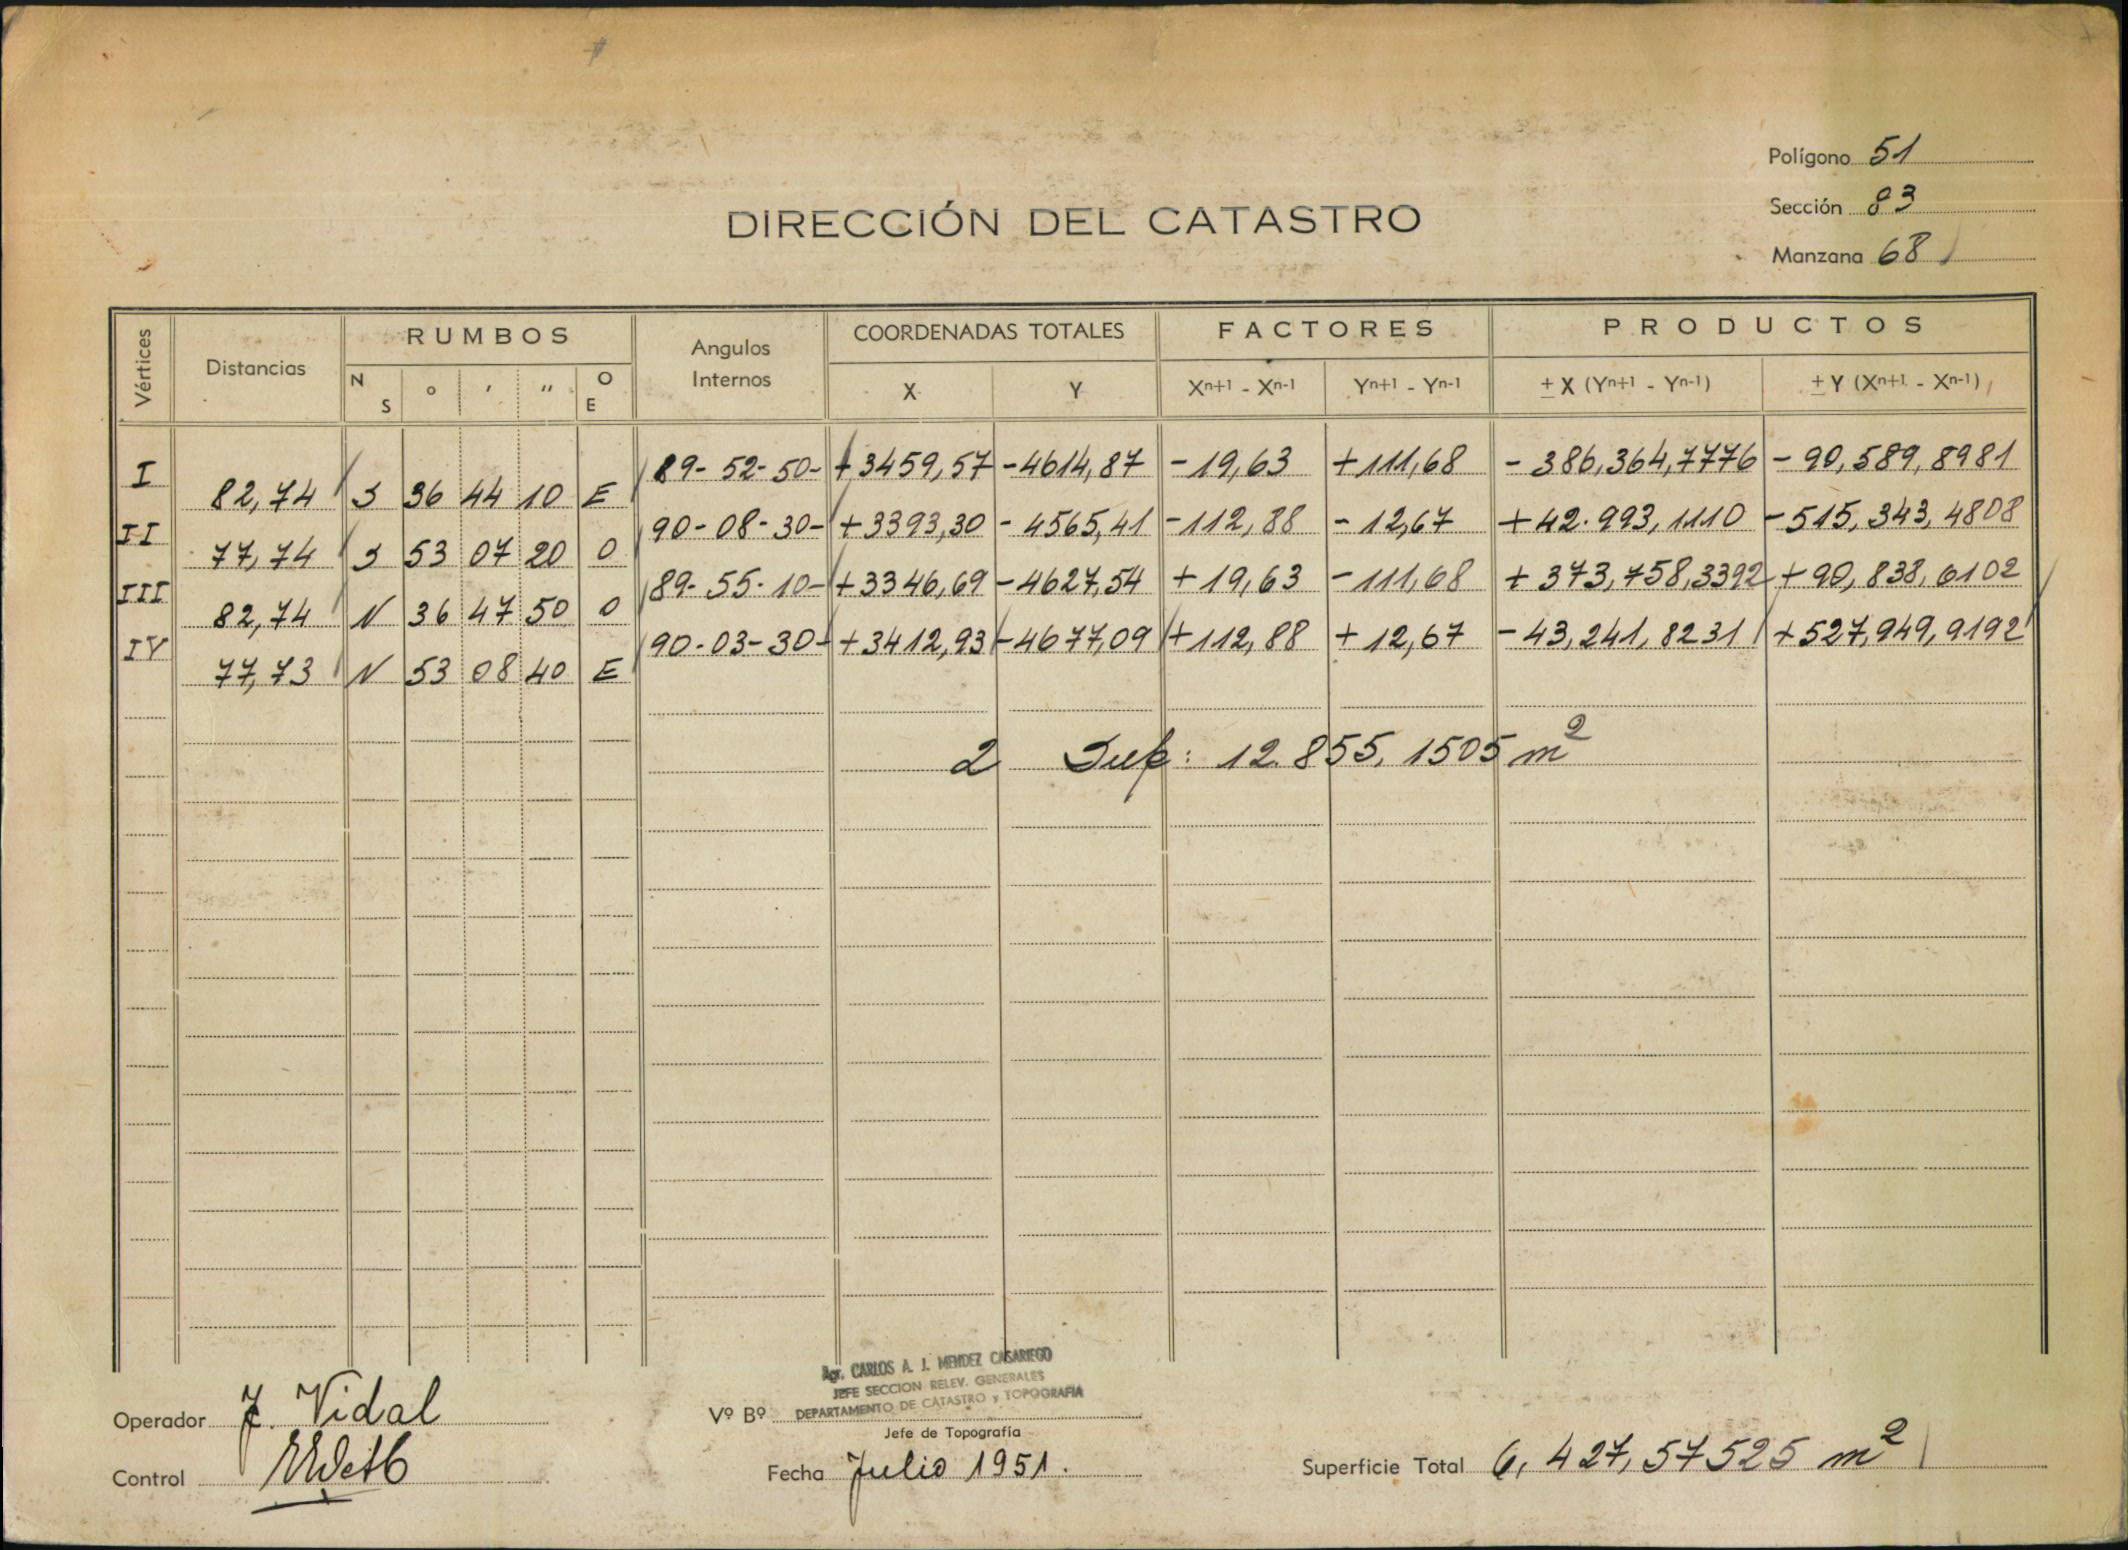 Polígono 51
Sección 83
Manzana 68
DIRECCIÓN DEL CATASTRO
Vértices Distancias RUMBOS Angulos Internos COORDENADAS TOTALES FACTORES PRODUCTOS
N S ° ′ ″ O E X Y Xn+1 - Xn-1 Yn+1 - Yn-1 ± X (Yn+1 - Yn-1) ± Y (Xn+1 - Xn-1)
I 89-52-50- +3459,57 -4614,87 -19,63 +111,68 -386,364,7776 -90,589,8981
82,74 S 36 44 10 E
II 90-08-30- +3393,30 -4565,41 -112,88 -12,67 +42.993,1110 -515,343,4808
77,74 S 53 07 20 O
III 89-55-10- +3346,69 -4627,54 +19,63 -111,68 +373,758,3392 +90,838,6102
82,74 N 36 47 50 O
IV 90-03-30- +3412,93 -4677,09 +112,88 +12,67 -43,241,8231 +527,949,9192
77,73 N 53 08 40 E
2 Sup: 12.855,1505 m²
Agr. CARLOS A. J. MENDEZ CASARIEGO
JEFE SECCION RELEV. GENERALES
DEPARTAMENTO DE CATASTRO y TOPOGRAFIA
Operador J. Vidal
Vº Bº
Jefe de Topografía
Control
Fecha Julio 1951.
Superficie Total 6,427,57525 m²